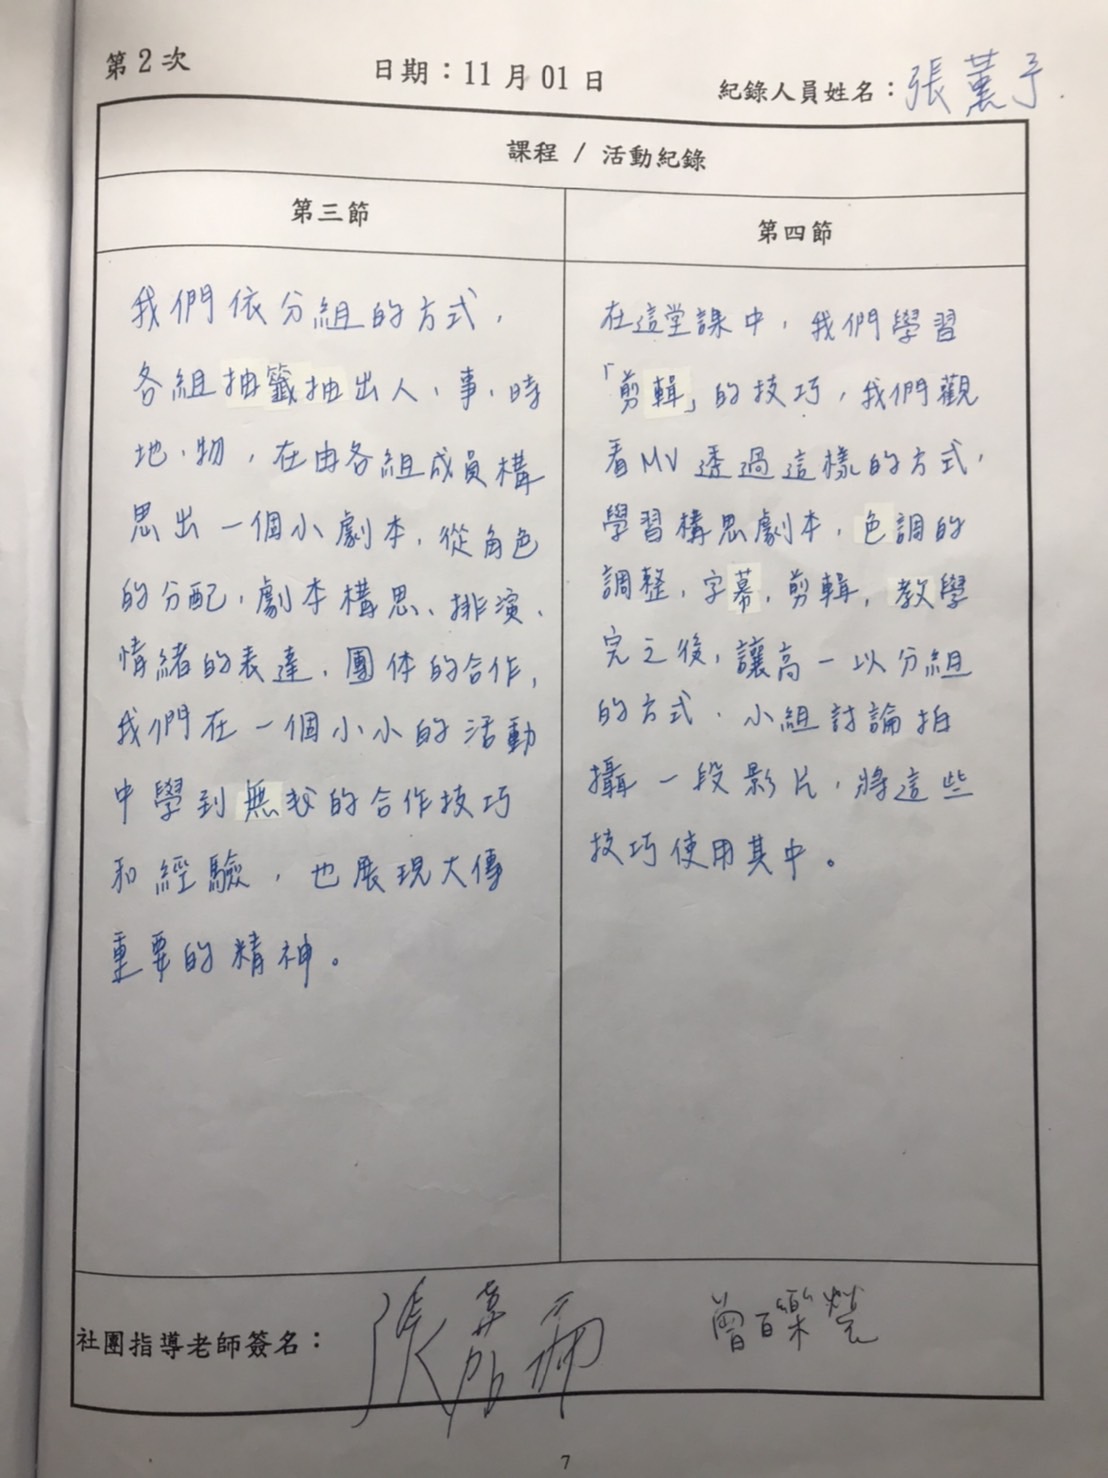 第2次
日期：11月01日
紀錄人員姓名：張薰予
課程 / 活動紀錄
第三節
我們依分組的方式，
各組抽籤抽出人、事、時
地、物，在由各組成員構
思出一個小劇本，從角色
的分配、劇本構思、排演、
情緒的表達、團体的合作，
我們在一個小小的活動
中學到無比的合作技巧
和經驗，也展現大傳
重要的精神。
第四節
在這堂課中，我們學習
「剪輯」的技巧，我們觀
看MV透過這樣的方式，
學習構思劇本，色調的
調整，字幕，剪輯，教學
完之後，讓高一以分組
的方式，小組討論拍
攝一段影片，將這些
技巧使用其中。
社團指導老師簽名：
張
曾百樂
7